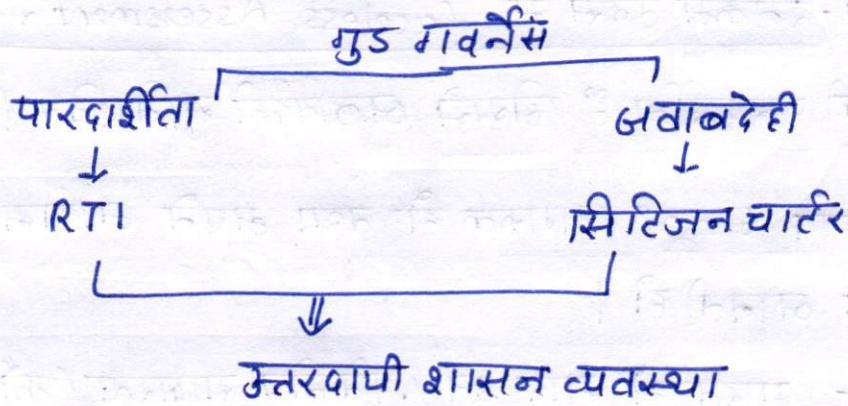 गुड गवर्नेंस
पारदर्शिता जवाबदेही
RTI सिटिजन चार्टर
उत्तरदायी शासन व्यवस्था